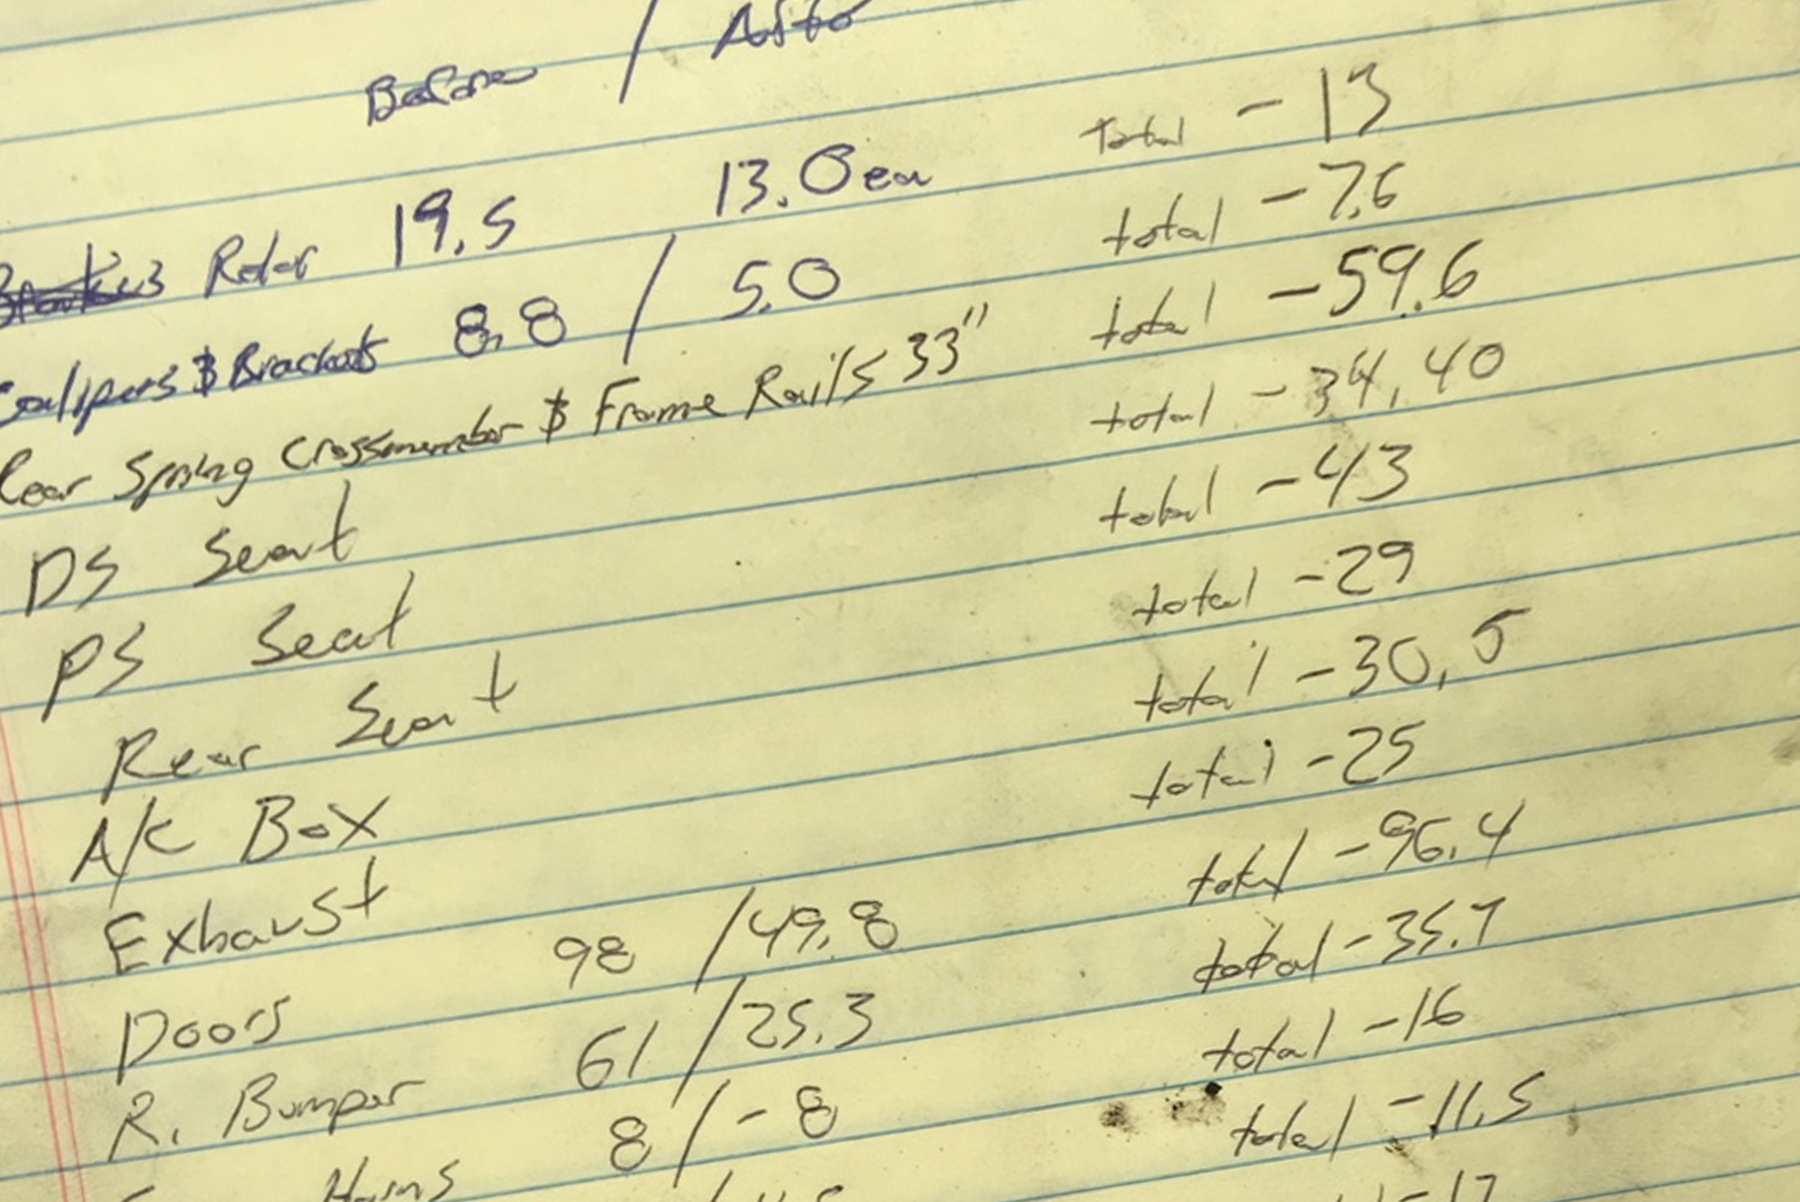 Before / After
Rotor 19.5 13.0 ea total -13
Calipers & Brackets 8.8 / 5.0 total -7.6
Rear Spring Crossmember & Frame Rails 33" total -59.6
DS Seat total -34.40
PS Seat total -43
Rear Seat total -29
A/C Box total -30.5
Exhaust total -25
Doors 98 / 49.8 total -96.4
R. Bumper 61 / 25.3 total -35.7
Horns 8 / -8 total -16
total -11.5
-17